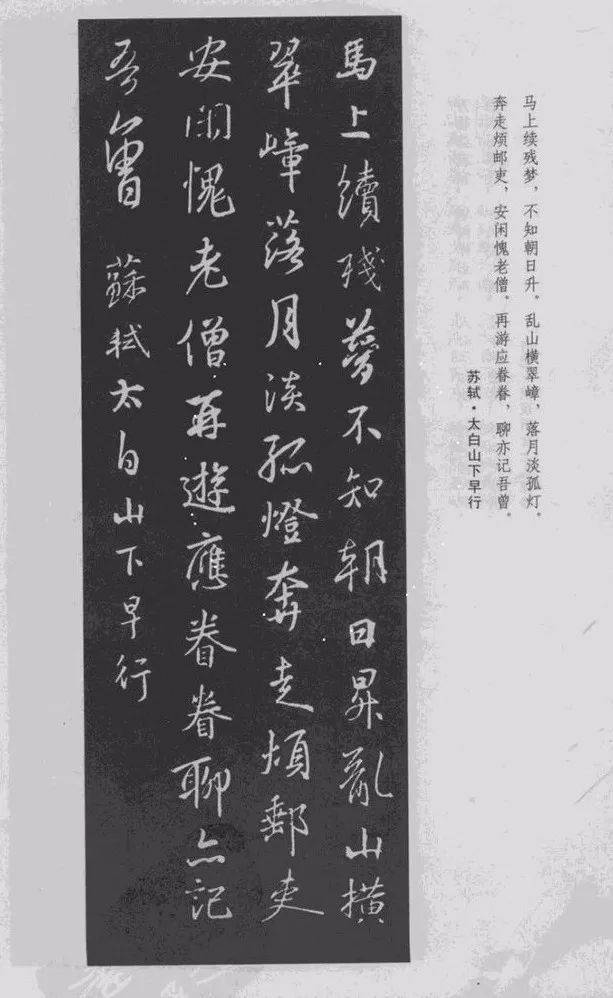 马上续残梦，不知朝日升。乱山横翠嶂，落月淡孤灯。
奔走烦邮吏，安闲愧老僧。再游应眷眷，聊亦记吾曾。
苏轼·太白山下早行
馬上續殘夢不知朝日昇亂山橫
翠嶂落月淡孤燈奔走煩郵吏
安閑愧老僧再遊應眷眷聊亦記
吾曾 蘇軾太白山下早行